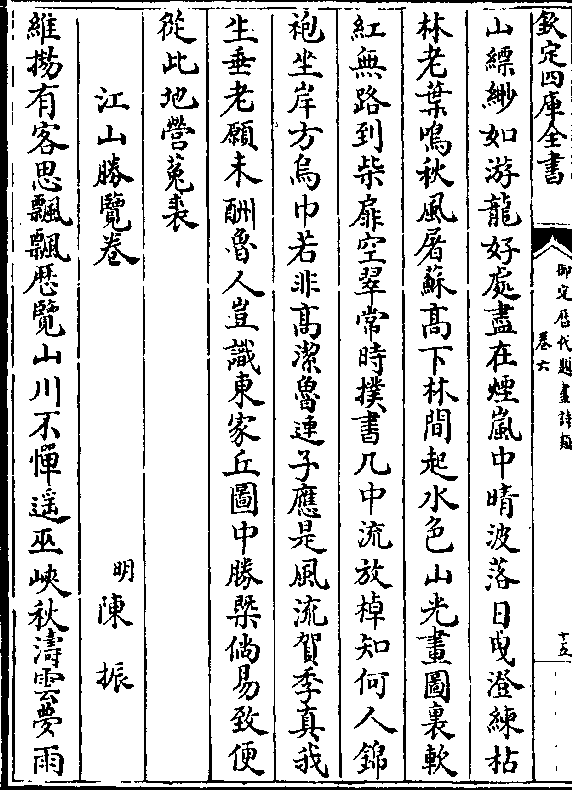 欽定四庫全書
御定歷代題畫詩類
卷六
十五
山縹緲如游龍好處盡在煙嵐中晴波落日曳澄練枯
林老葉鳴秋風屠蘇高下林間起水色山光畫圖裏軟
紅無路到柴扉空翠常時撲書几中流放棹知何人錦
袍坐岸方烏巾若非高潔魯連子應是風流賀季真我
生垂老願未酬魯人豈識東家丘圖中勝槩倘易致便
從此地營菟裘
江山勝覽卷
明陳振
維揚有客思飄飄歷覽山川不憚遥巫峽秋濤雲夢雨